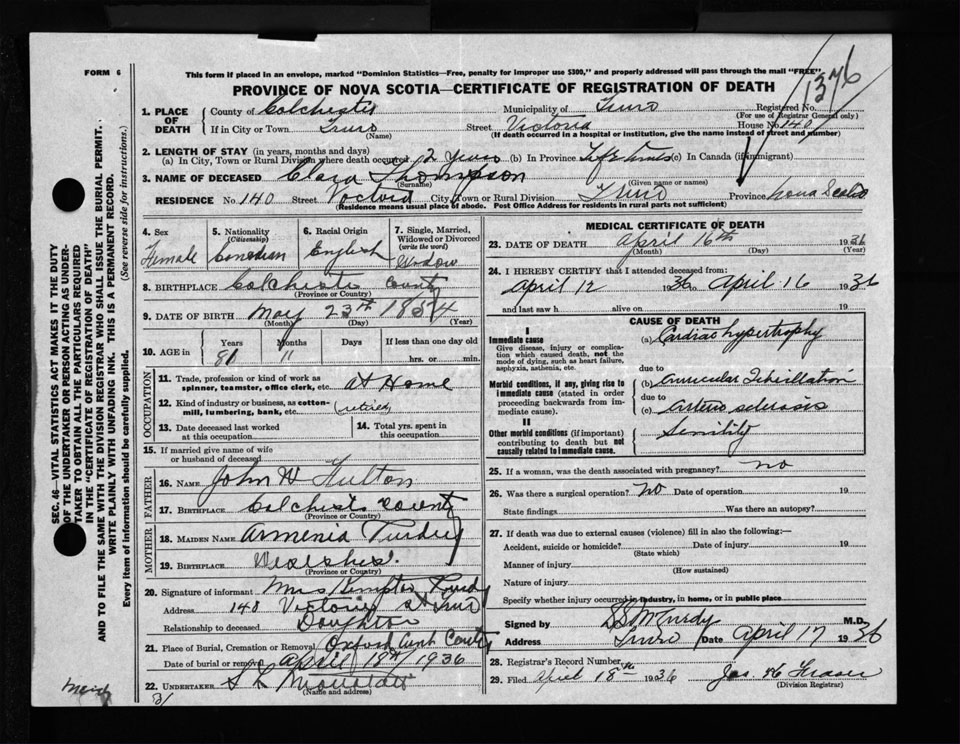 FORM 6
This form if placed in an envelope, marked "Dominion Statistics—Free, penalty for improper use $300," and properly addressed will pass through the mail "FREE"
1376
PROVINCE OF NOVA SCOTIA—CERTIFICATE OF REGISTRATION OF DEATH
1. PLACE OF DEATH
County of Colchester Municipality of Truro Registered No.
(For use of Registrar General only)
If in City or Town Truro Street Victoria House No. 140
(Name) (If death occurred in a hospital or institution, give the name instead of street and number)
2. LENGTH OF STAY (in years, months and days)
(a) In City, Town or Rural Division where death occurred 2 Years (b) In Province Life time (c) In Canada (if immigrant)
3. NAME OF DECEASED Clara Thompson
(Surname) (Given name or names)
RESIDENCE No. 140 Street City, Town or Rural Division Truro Province Nova Scotia
(Residence means usual place of abode. Post Office Address for residents in rural parts not sufficient)
4. Sex Female
5. Nationality (Citizenship) Canadian
6. Racial Origin English
7. Single, Married, Widowed or Divorced (write the word) Widow
8. BIRTHPLACE Colchester County
(Province or Country)
9. DATE OF BIRTH May 23rd 1854
(Month) (Day) (Year)
10. AGE in Years Months Days If less than one day old
81 11 hrs. or min.
OCCUPATION
11. Trade, profession or kind of work as spinner, teamster, office clerk, etc. At Home
12. Kind of industry or business, as cotton-mill, lumbering, bank, etc. (retired)
13. Date deceased last worked at this occupation
14. Total yrs. spent in this occupation
15. If married give name of wife or husband of deceased
FATHER
16. NAME John W Fulton
17. BIRTHPLACE Colchester County
(Province or Country)
MOTHER
18. MAIDEN NAME Armenia Purdy
19. BIRTHPLACE
(Province or Country)
20. Signature of informant Mrs Kempton Purdy
Address 140 Victoria St Truro
Relationship to deceased Daughter
21. Place of Burial, Cremation or Removal Oxford Cumb County
Date of burial or removal April 18th 1936
22. UNDERTAKER
(Name and address)
MEDICAL CERTIFICATE OF DEATH
23. DATE OF DEATH April 16th 1936
(Month) (Day) (Year)
24. I HEREBY CERTIFY that I attended deceased from:
April 12 1936 to April 16 1936
and last saw h alive on 19
CAUSE OF DEATH
I
Immediate cause
Give disease, injury or complication which caused death, not the mode of dying, such as heart failure, asphyxia, asthenia, etc.
(a) Cardiac hypertrophy
due to
Morbid conditions, if any, giving rise to immediate cause (stated in order proceeding backwards from immediate cause).
(b) Auricular Fibrillation
due to
(c) Arterio sclerosis
II
Other morbid conditions (if important) contributing to death but not causally related to immediate cause.
Senility
25. If a woman, was the death associated with pregnancy? no
26. Was there a surgical operation? no Date of operation 19
State findings Was there an autopsy?
27. If death was due to external causes (violence) fill in also the following:—
Accident, suicide or homicide? Date of injury 19
(State which)
Manner of injury
(How sustained)
Nature of injury
Specify whether injury occurred in industry, in home, or in public place
Signed by McCurdy M.D.
Address Truro Date April 17 1936
28. Registrar's Record Number
29. Filed April 18th 1936
(Division Registrar)
SEC. 46—VITAL STATISTICS ACT MAKES IT THE DUTY
OF THE UNDERTAKER OR PERSON ACTING AS UNDER-
TAKER TO OBTAIN ALL THE PARTICULARS REQUIRED
IN THE "CERTIFICATE OF REGISTRATION OF DEATH"
AND TO FILE THE SAME WITH THE DIVISION REGISTRAR WHO SHALL ISSUE THE BURIAL PERMIT.
WRITE PLAINLY WITH UNFADING INK. THIS IS A PERMANENT RECORD.
Every item of information should be carefully supplied. (See reverse side for instructions.)